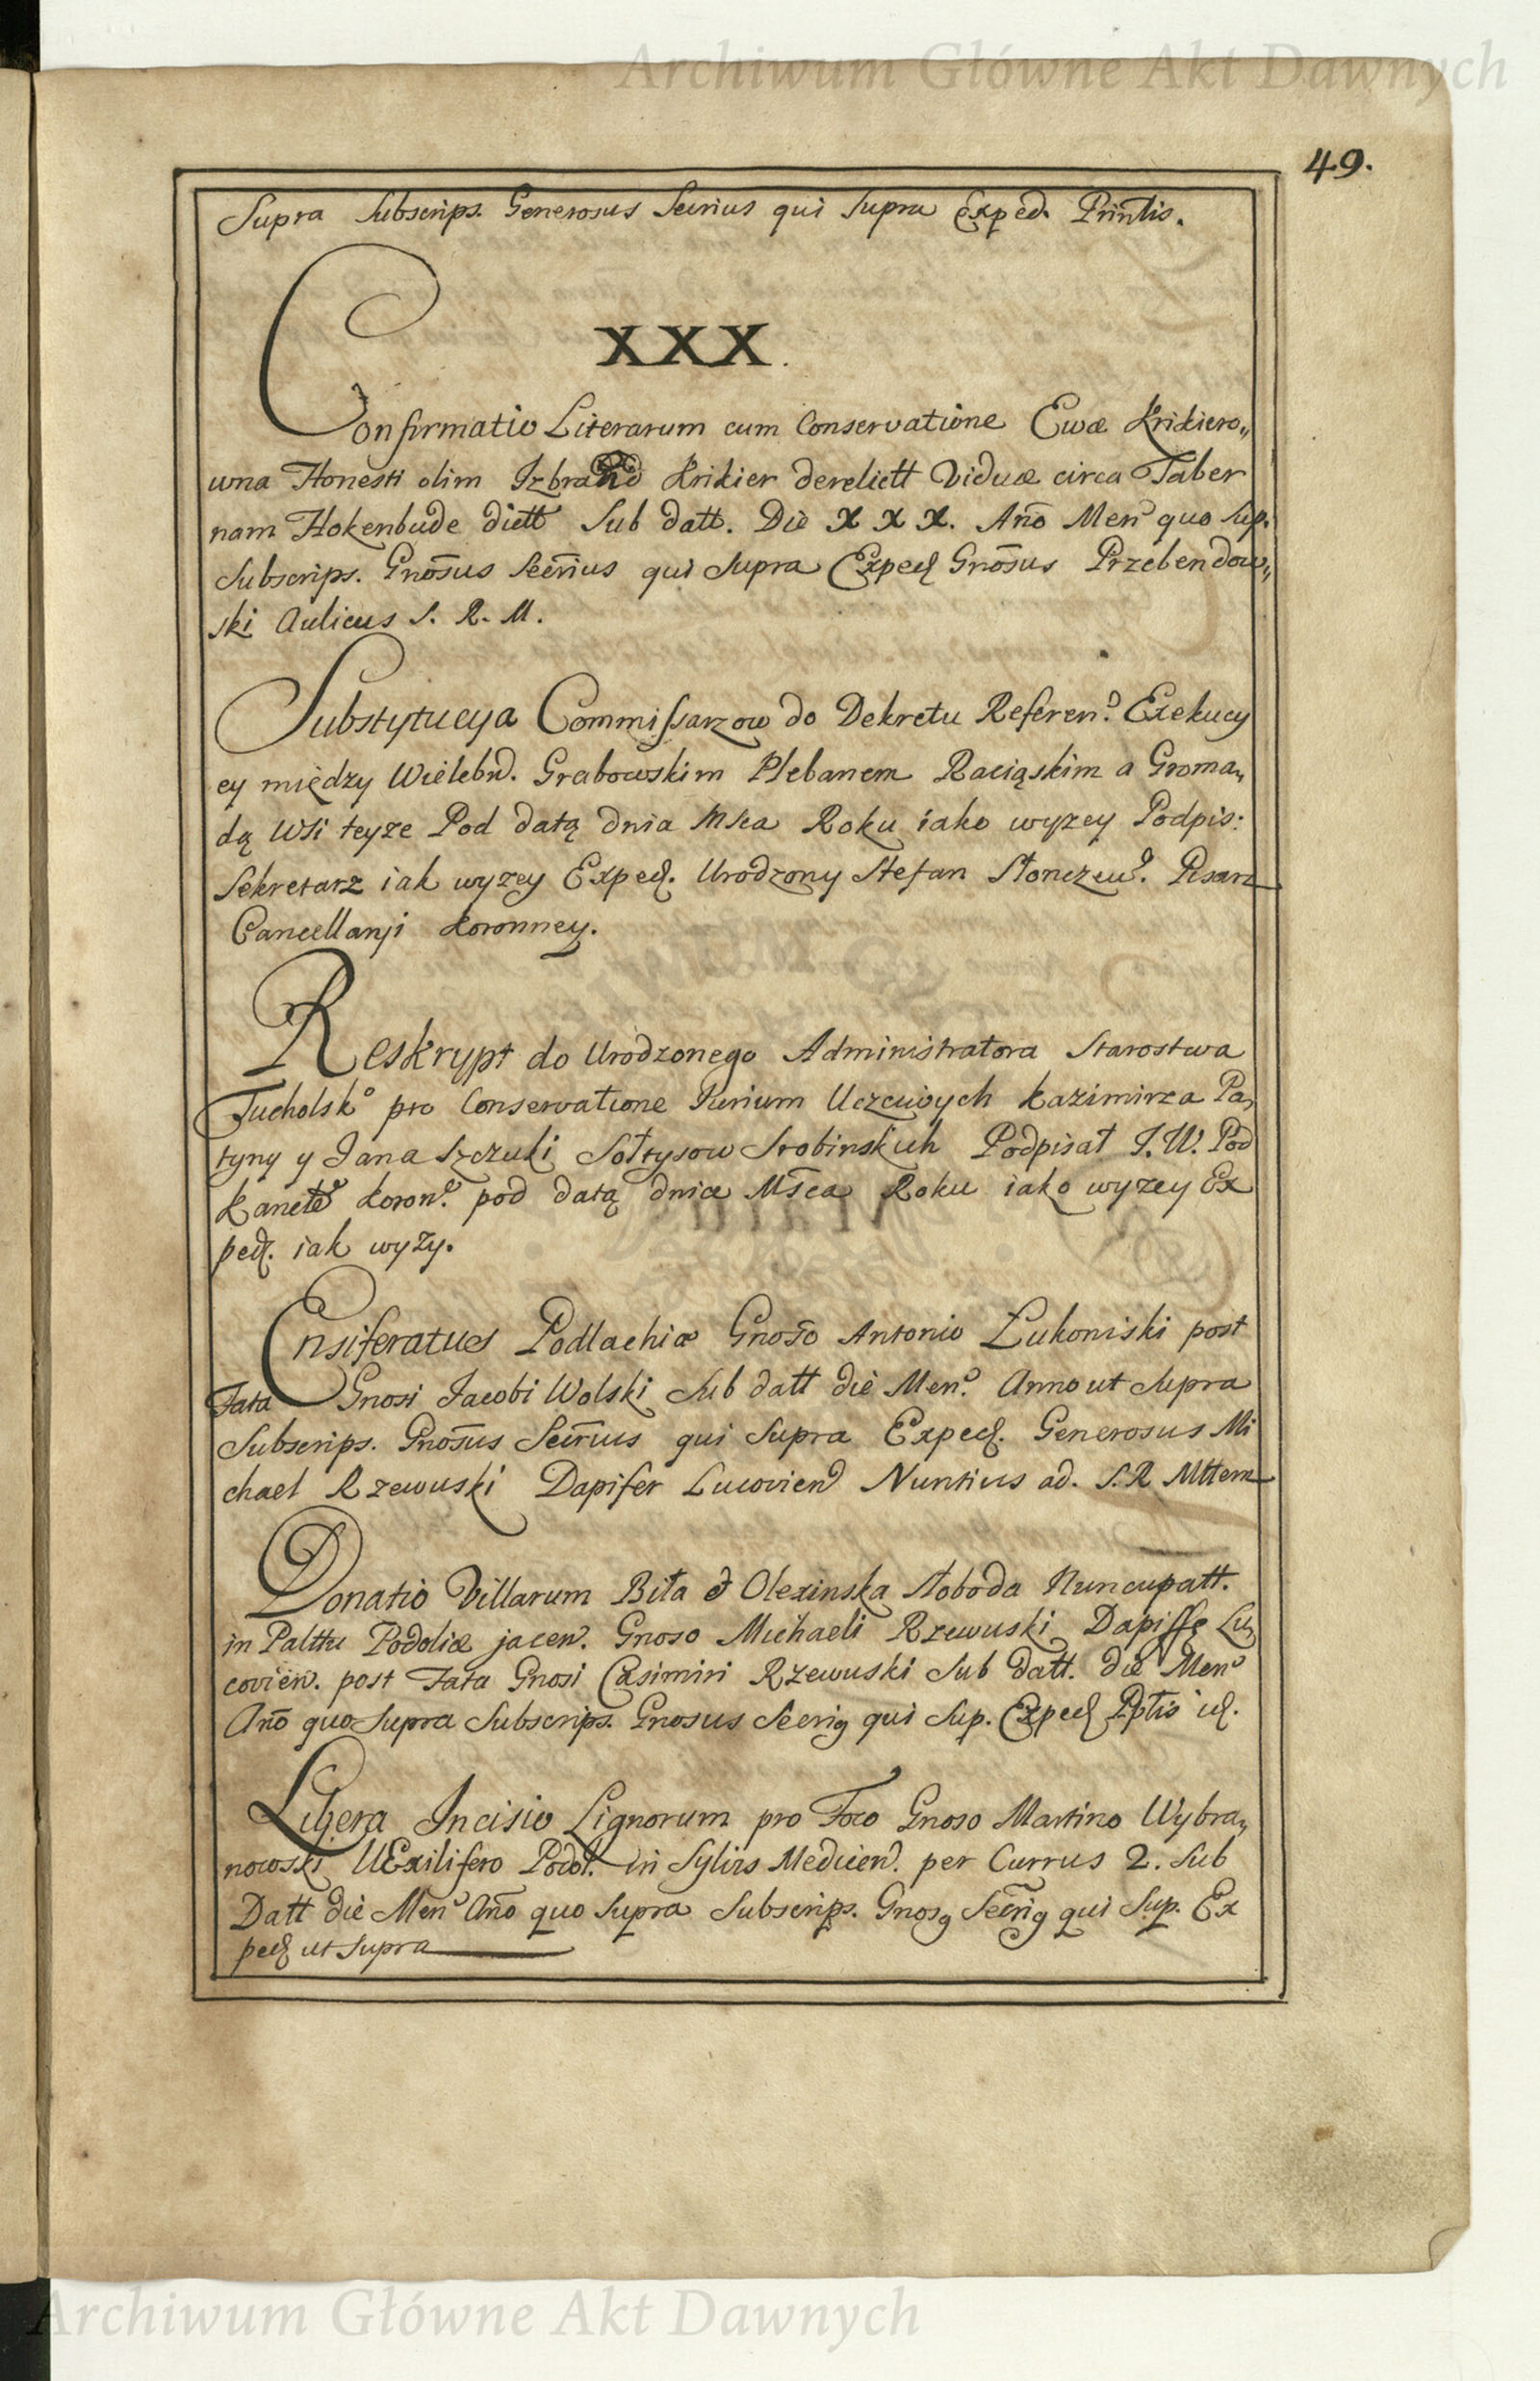 Archiwum Główne Akt Dawnych
49.
Supra Subscrips. Generosus Secrius qui Supra Exped. Printis.
XXX.
Confirmatio Literarum cum Conservatione Ewæ Krikiero„
wna Honesti olim Izbrand Krikier derelictt Viduæ circa Taber
nam Hokenbude dictt Sub datt. Die X X X. Ano Men quo Sup.
Subscrips. Gnosus Secrius qui Supra Exped Gnosus Przebendow„
ski Aulicus S. R. M.
Substytucya Commissarzow do Dekretu Referen. Exekucy
cy między Wielebn. Grabowskim Plebanem Raciąskim a Groma„
dą Wsi teyze Pod datą dnia Msca Roku iako wyzey Podpis:
Sekretarz iak wyzey Exped. Urodzony Stefan Słonczew. Pisarz
Cancellaryi Koronney.
Reskrypt do Urodzonego Administratora Starostwa
Tucholsko pro Conservatione Jurium Uczciwych Kazimirza Pa„
tyny y Jana Szczuki Sołtysow Srobinskich Podpisał J. W. Pod
Kancl Koron. pod datą dnia Msca Roku iako wyzey Ex
ped. iak wyzy.
Ensiferatues Podlachiæ Gnoso Antonio Łukoniski post
Fata Gnosi Jacobi Wolski Sub datt die Men. Anno ut Supra
Subscrips. Gnosus Secrius qui Supra Exped. Generosus Mi
chael Rzewuski Dapifer Lucovien Nuntius ad. S. R Mttem
Donatio Villarum Biła et Olexinska Słoboda Nuncupatt.
in Palttu Podoliæ jacen. Gnoso Michaeli Rzewuski Dapiffe Lu„
covien. post Fata Gnosi Casimiri Rzewuski Sub datt. die Men
Ano quo Supra Subscrips. Gnosus Secrig qui Sup. Exped Pptis id.
Libera Incisio Lignorum pro Foco Gnoso Martino Wybra„
nowski VExilifero Podol. in Sylvis Medicen. per Currus 2. Sub
Datt die Men Ano quo Supra Subscrips. Gnosg Secrig qui Sup. Ex
ped ut Supra
Archiwum Główne Akt Dawnych